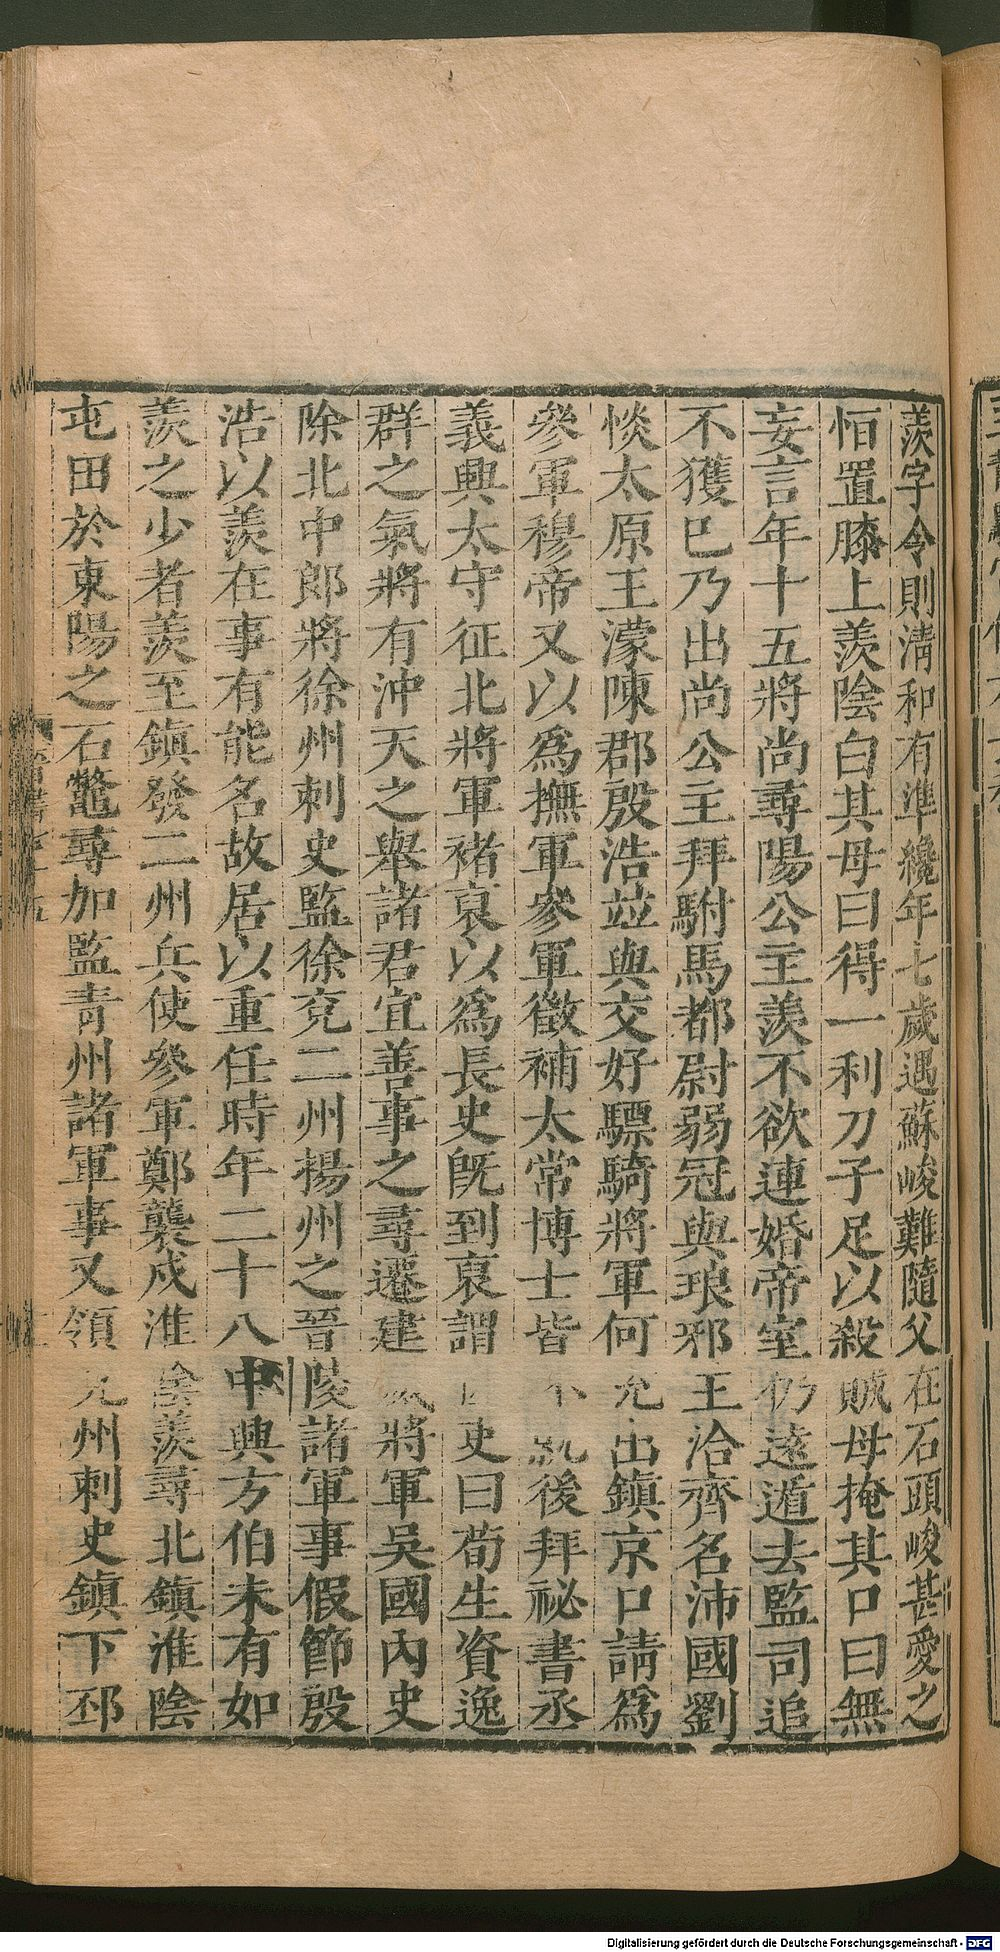 羨字令則清和有準纔年七歲遇蘇峻難隨父在石頭峻甚愛之
恒置膝上羨陰白其母曰得一利刀子足以殺賊母掩其口曰無
妄言年十五將尚尋陽公主羨不欲連婚帝室仍遠遁去監司追
不獲巳乃出尚公主拜駙馬都尉弱冠與琅邪王洽齊名沛國劉
惔太原王濛陳郡殷浩竝與交好驃騎將軍何充出鎮京口請爲
參軍穆帝又以爲撫軍參軍徵補太常博士皆不就後拜祕書丞
義興太守征北將軍褚裒以爲長史旣到裒謂史曰荀生資逸
群之氣將有沖天之舉諸君宜善事之尋遷建將軍吳國內史
除北中郎將徐州刺史監徐兗二州揚州之晉陵諸軍事假節殷
浩以羨在事有能名故居以重任時年二十八中興方伯未有如
羨之少者羨至鎮發二州兵使參軍鄭襲戍淮陰羨尋北鎮淮陰
屯田於東陽之石鼈尋加監青州諸軍事又領兗州刺史鎮下邳
Digitalisierung gefördert durch die Deutsche Forschungsgemeinschaft - DFG